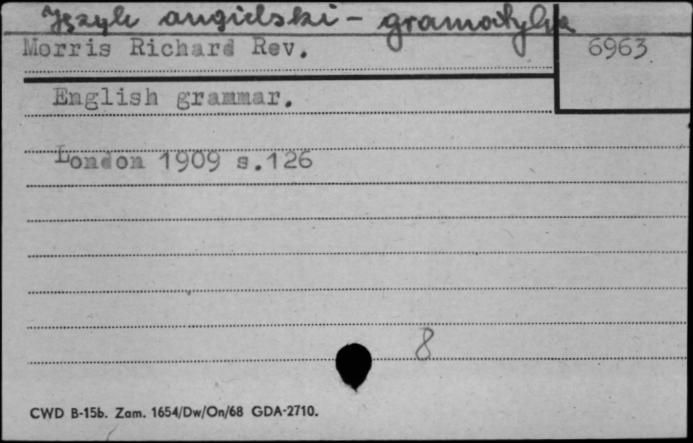 Język angielski - gramatyka
Morris Richard Rev.
6963
English grammar.
London 1909 s.126
8
CWD B-15b. Zam. 1654/Dw/On/68 GDA-2710.